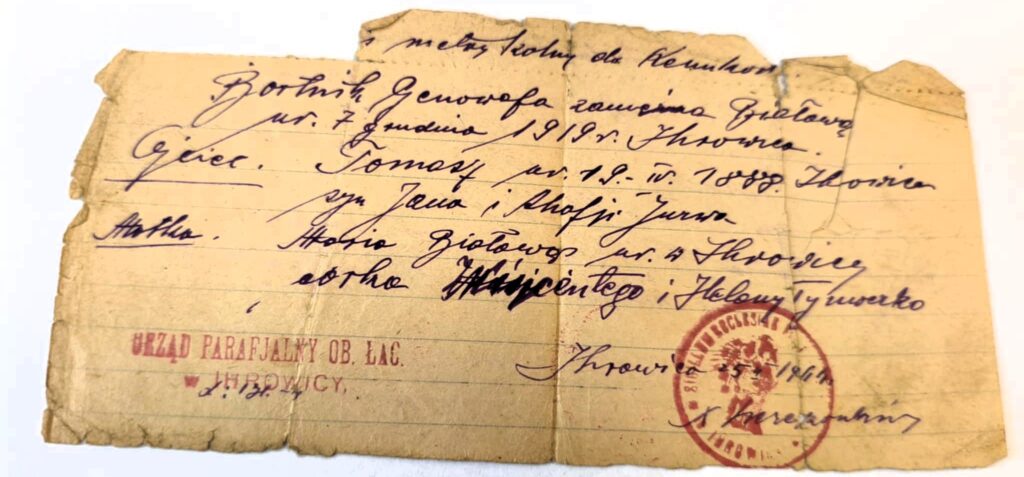 i metry kalny do
Bortnik Genowefa zamężna Białowąs
ur. 7 grudnia 1919 r. Ihrowica.
Ojciec. Tomasz ur. 19.-IV. 1888. Ihrowica
syn Jana i Zurwa
Matka. Maria Białowąs ur. w Ihrowicy
córka Wincentego i Heleny Tymoczko
URZĄD PARAFJALNY OB. ŁAC.
W IHROWICY,
Ihrowica 1944